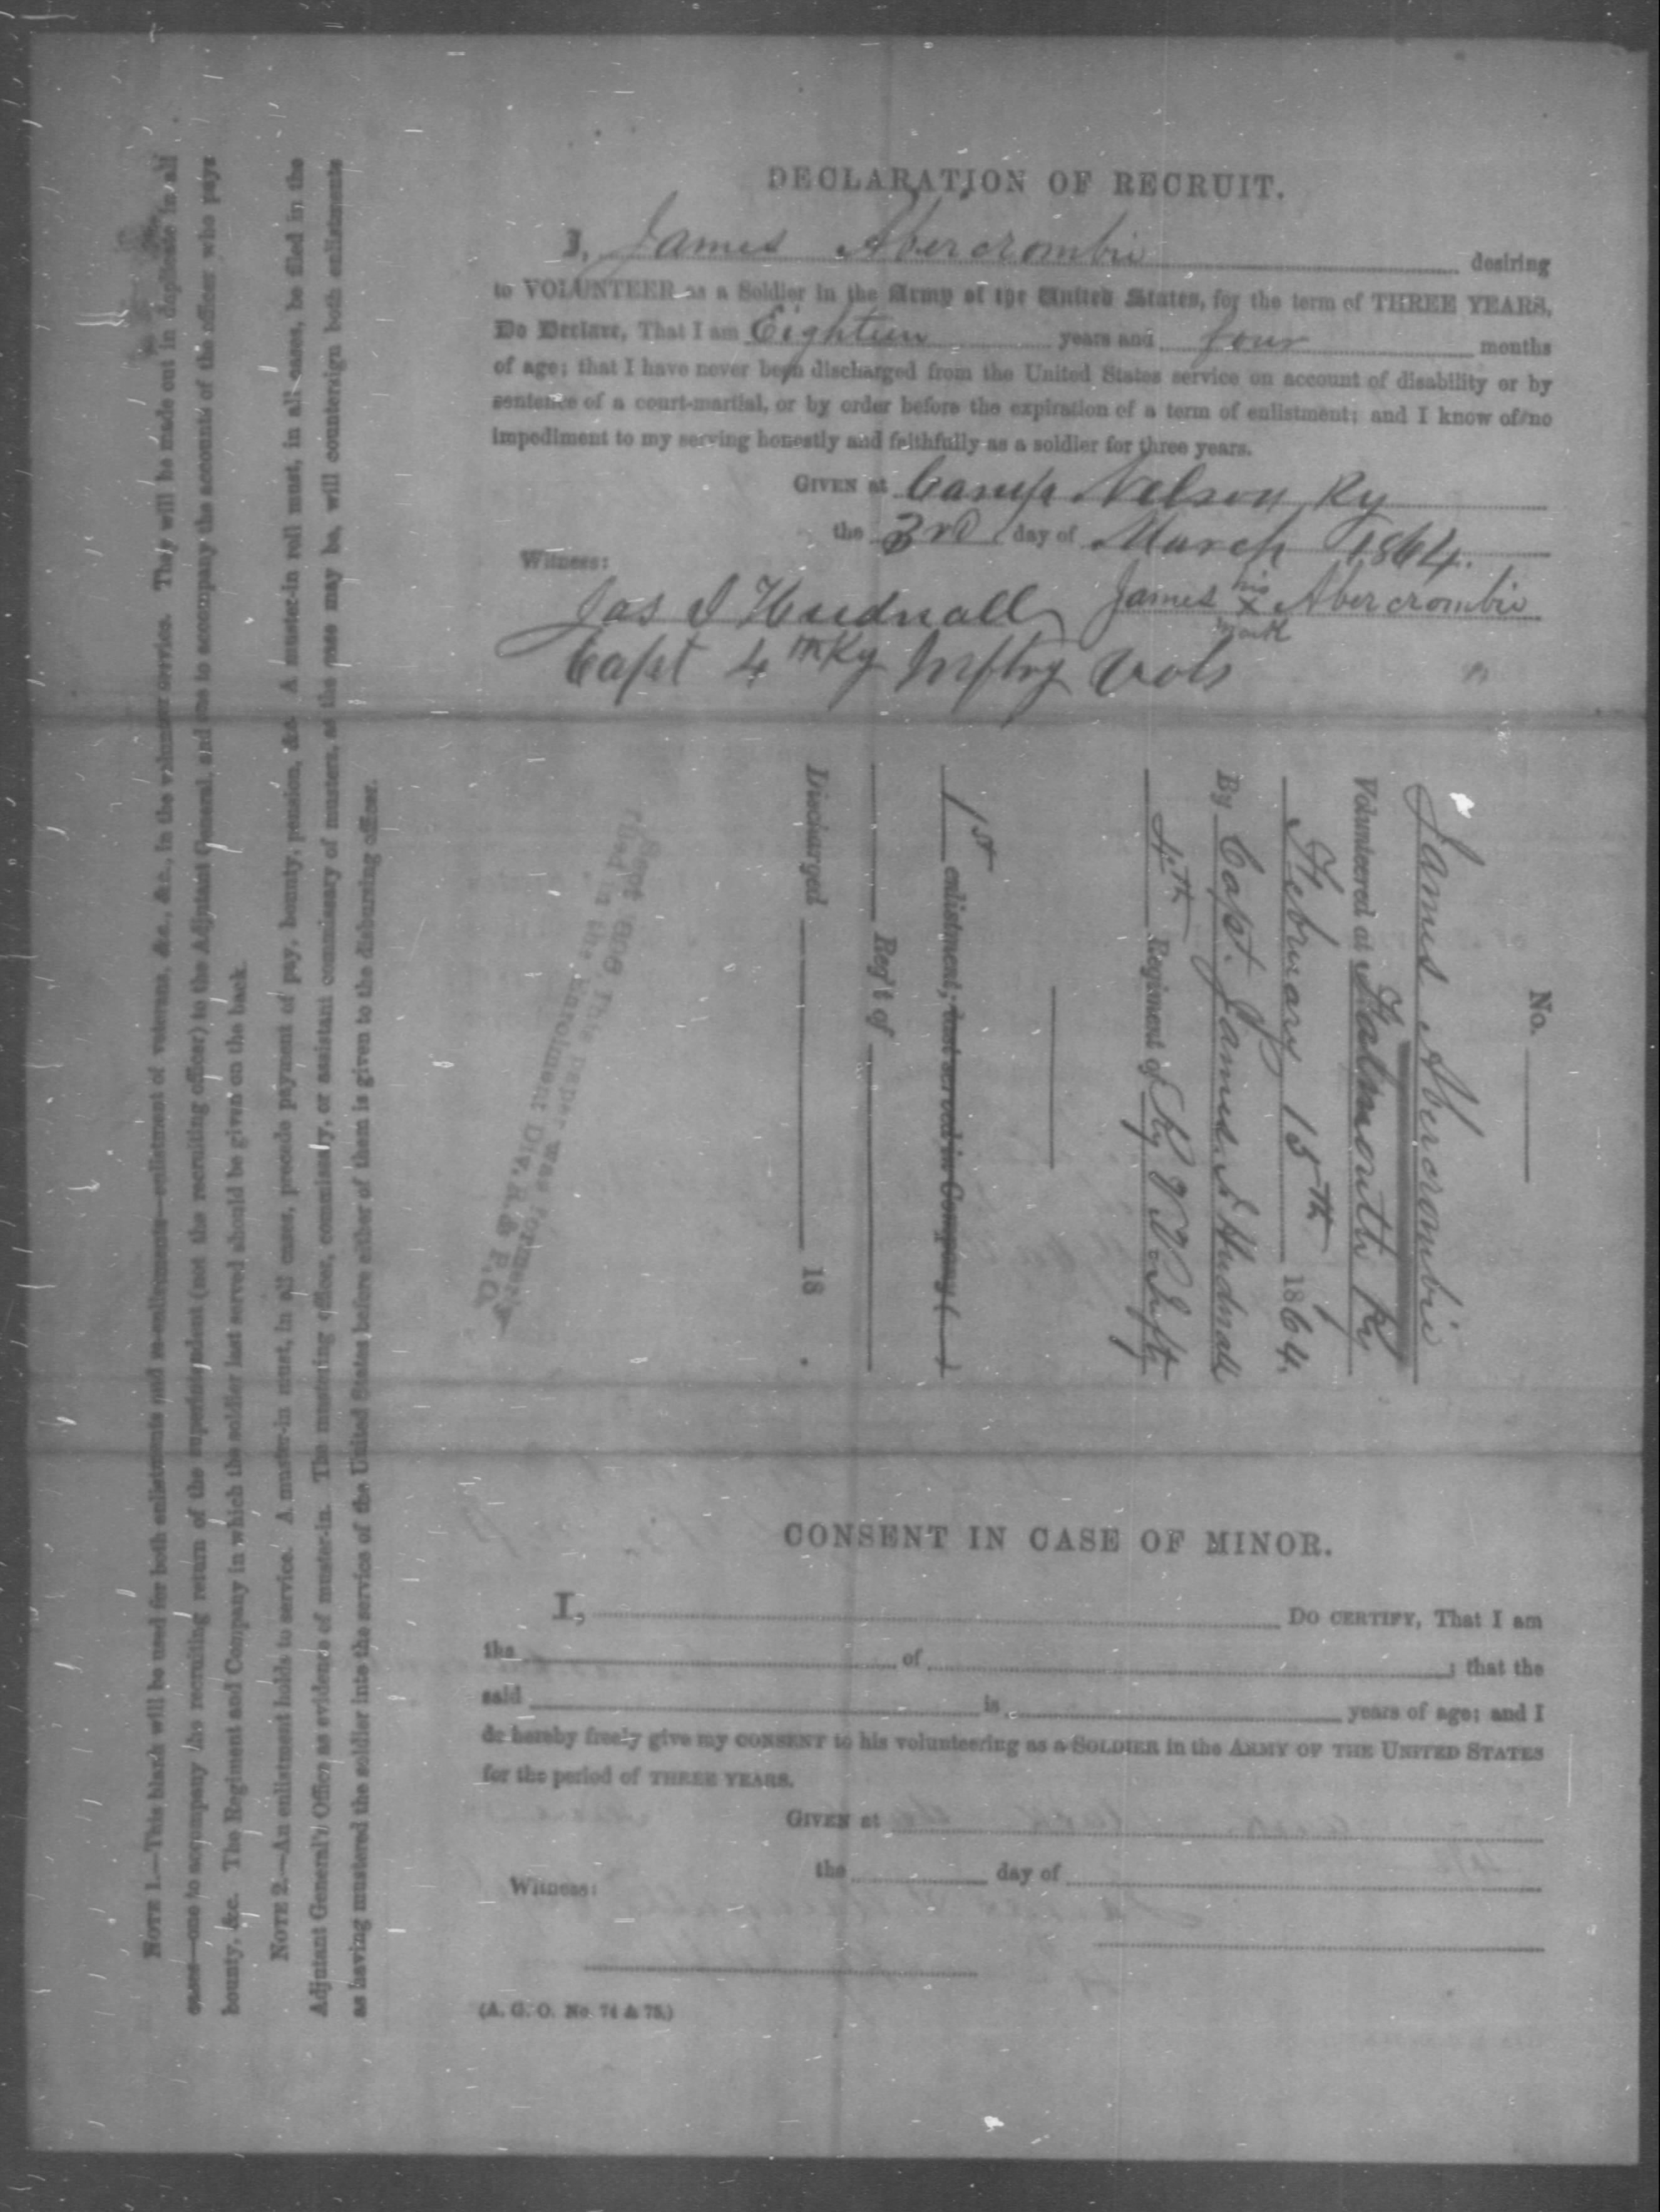 DECLARATION OF RECRUIT.
I, James Abercrombie desiring
to VOLUNTEER as a Soldier in the Army of the United States, for the term of THREE YEARS,
Do Declare, That I am Eighteen years and four months
of age; that I have never been discharged from the United States service on account of disability or by
sentence of a court-martial, or by order before the expiration of a term of enlistment; and I know of no
impediment to my serving honestly and faithfully as a soldier for three years.
GIVEN at Camp Nelson Ky
the 3rd day of March 1864.
Witness:
Jas S Hudnall James his X mark Abercrombie
Capt 4th Ky Inftry Vols
No.
James Abercrombie
Volunteered at Falmouth Ky
February 15th 1864.
By Capt. James S Hudnall
4th Regiment of Ky V. Infty
1st enlistment; last served in Company ( )
Reg't of
Discharged 18 .
Sept 1808 This paper was formerly
filed in the Enrolment Div. R. & P. O.
CONSENT IN CASE OF MINOR.
I, DO CERTIFY, That I am
the of ; that the
said is years of age; and I
do hereby freely give my CONSENT to his volunteering as a SOLDIER in the ARMY OF THE UNITED STATES
for the period of THREE YEARS.
GIVEN at
the day of
Witness:
(A. G. O. No. 74 & 75.)
NOTE 1.—This blank will be used for both enlistments and re-enlistments—enlistment of veterans, &c., &c., in the volunteer service. They will be made out in duplicate in all
cases—one to accompany the recruiting return of the superintendent (not the recruiting officer) to the Adjutant General, and one to accompany the accounts of the officer who pays
bounty, &c. The Regiment and Company in which the soldier last served should be given on the back.
NOTE 2.—An enlistment holds to service. A muster-in must, in all cases, precede payment of pay, bounty, pension, &c. A muster-in roll must, in all cases, be filed in the
Adjutant General's Office as evidence of muster-in. The mustering officer, commissary, or assistant commissary of musters, as the case may be, will countersign both enlistments
as having mustered the soldier into the service of the United States before either of them is given to the disbursing officer.